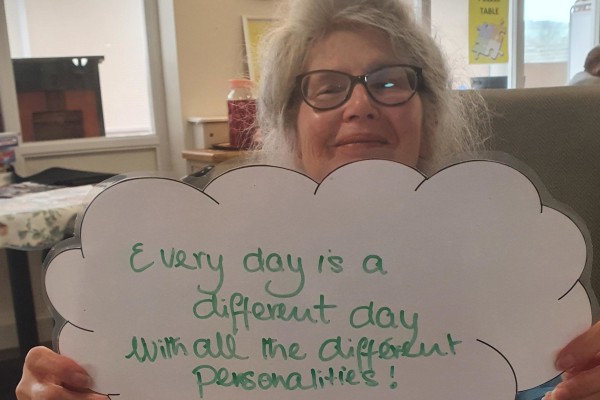 TABLE
Every day is a
different day
With all the different
personalities!